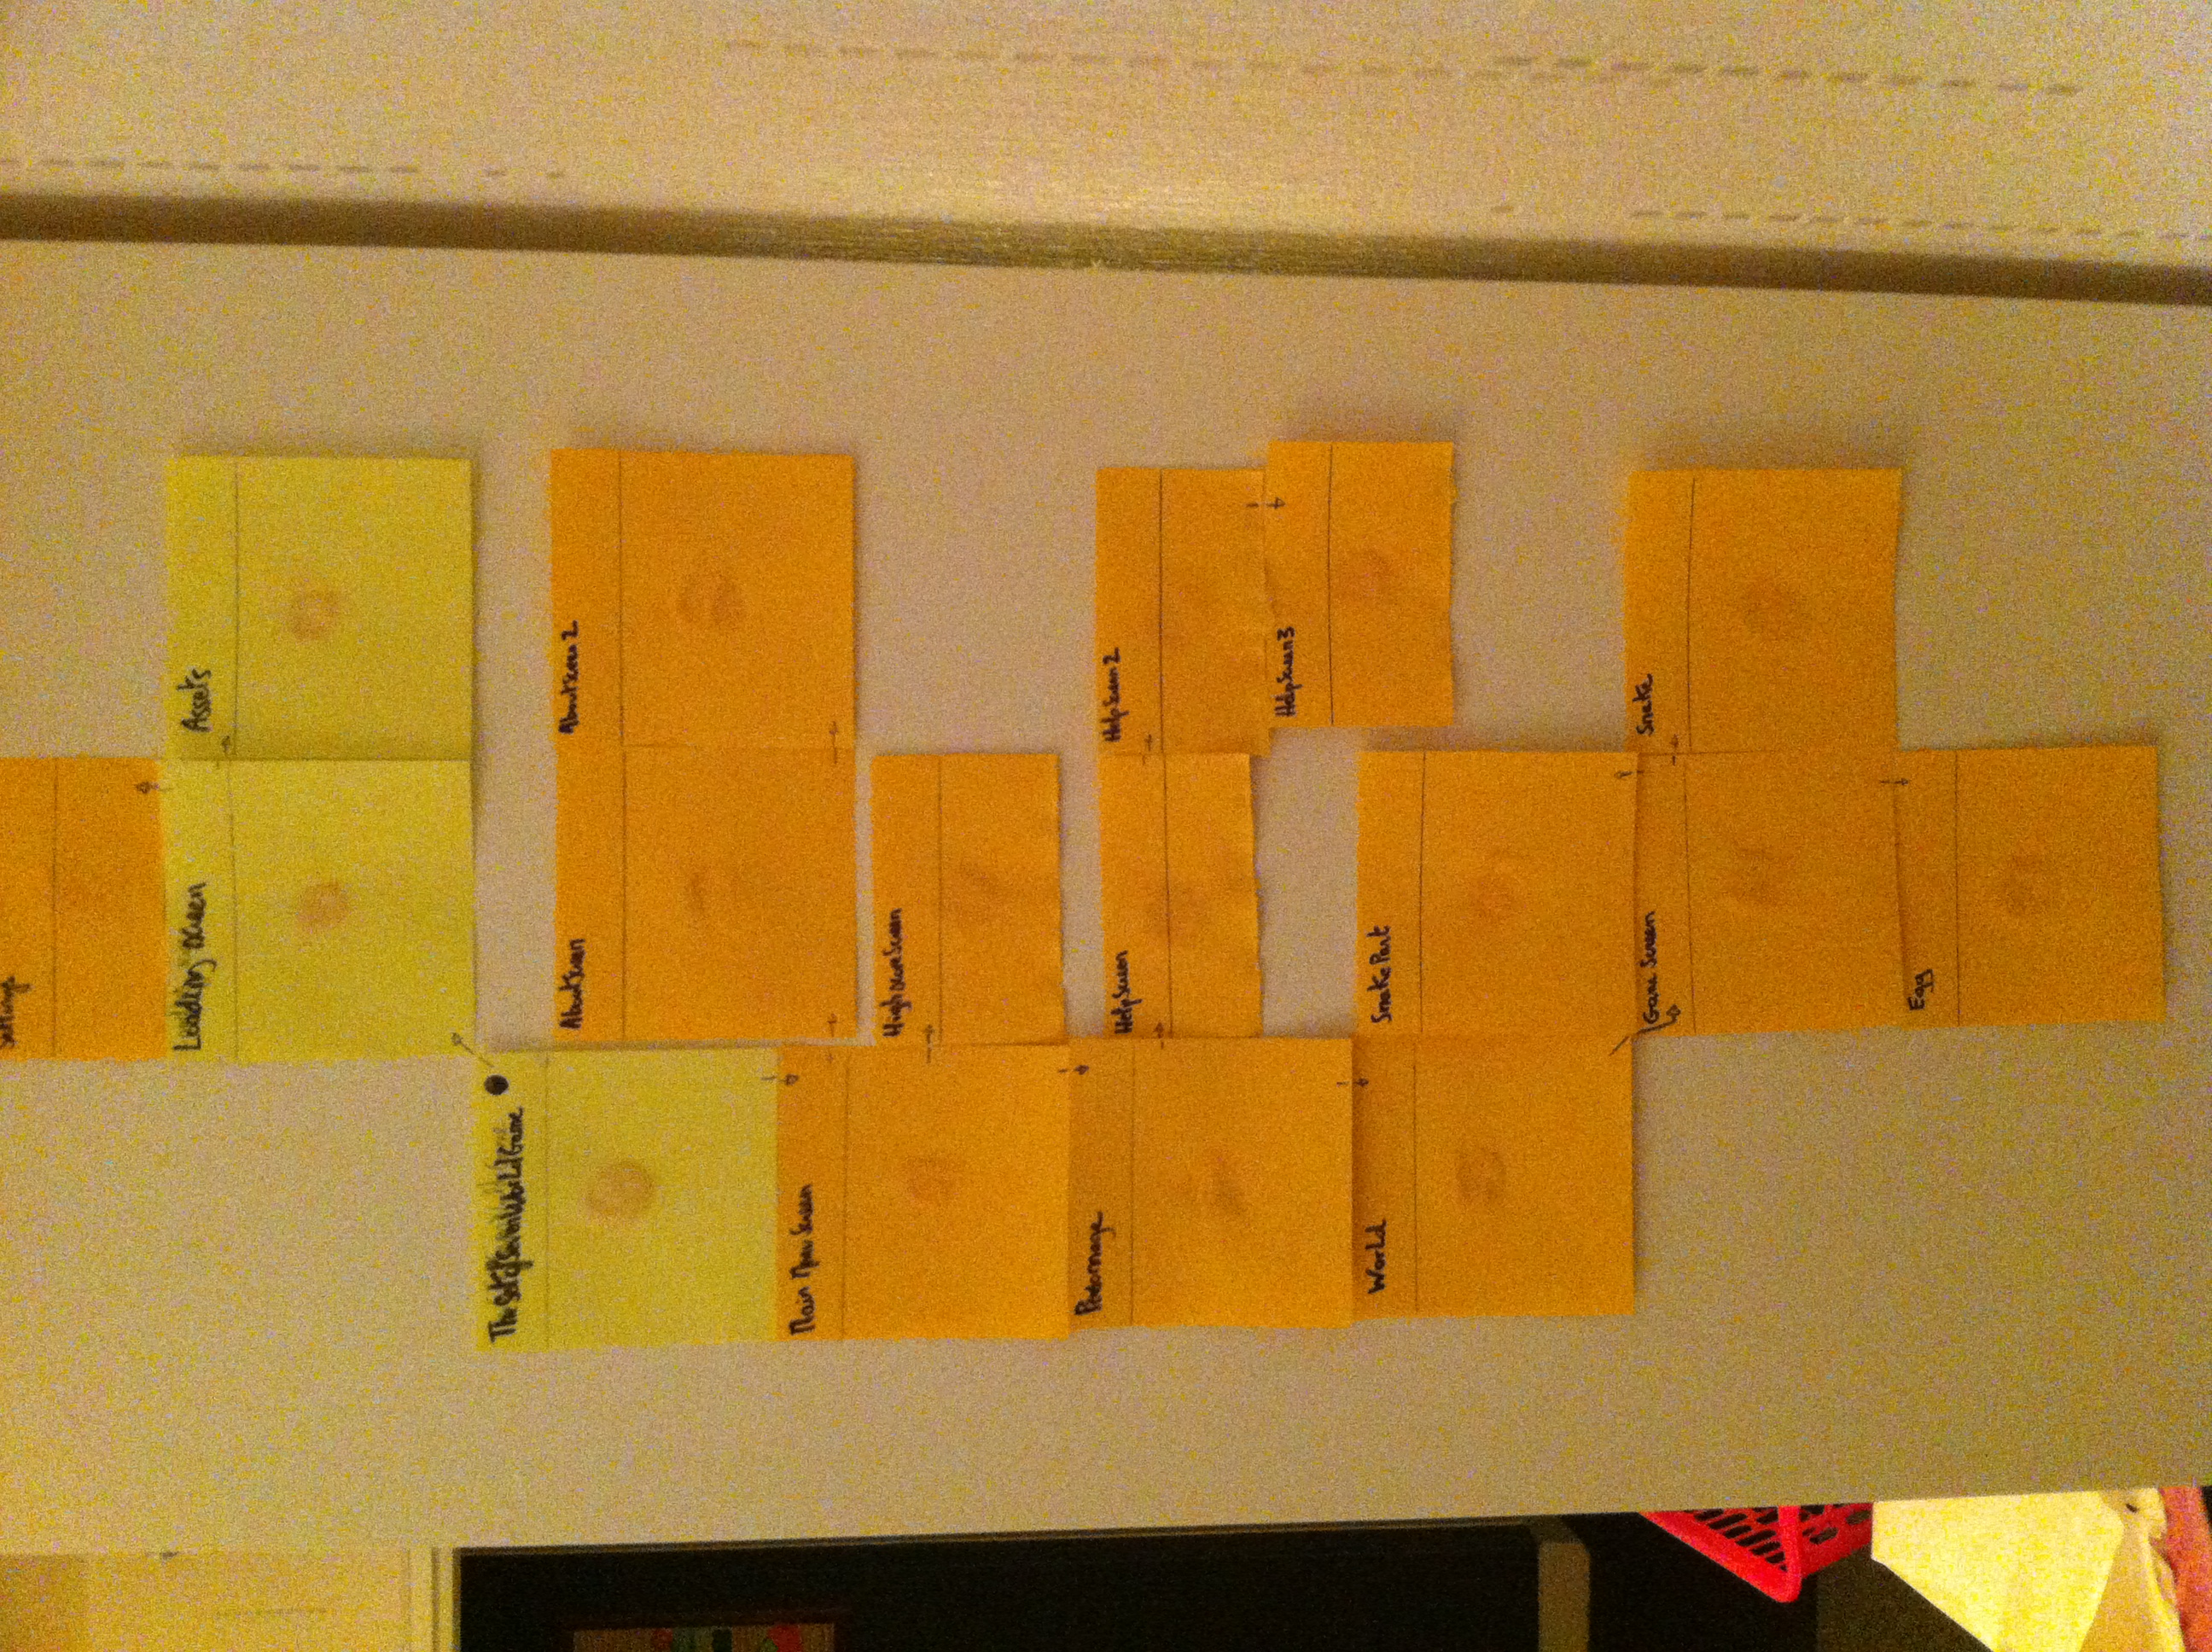 Settings
Loading screen
Assets
TheSetofSevenWorldGame
AboutScreen
AboutScreen 2
Main Menu Screen
HighscoreScreen
Personnage
HelpScreen
HelpScreen 2
HelpScreen 3
World
Snake Part
Game Screen
Snake
Egg